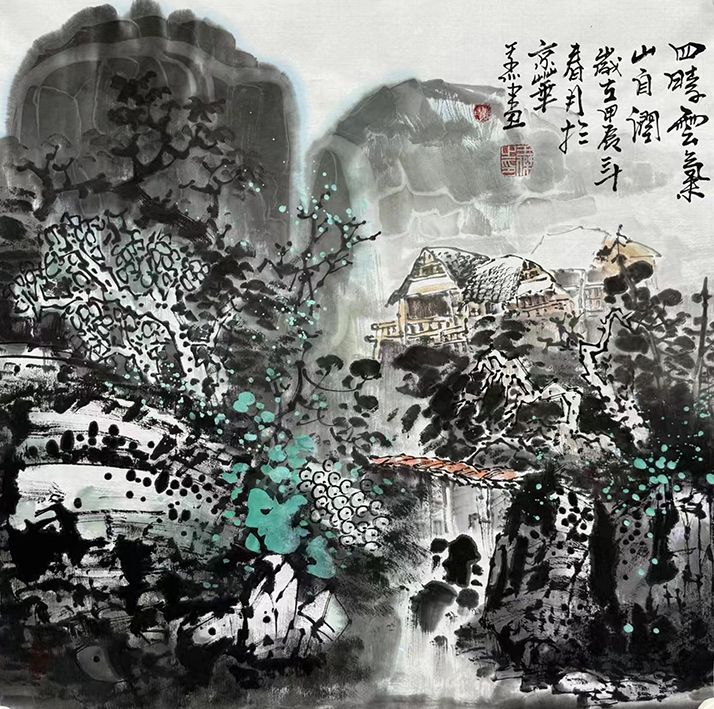 四時雲氣
山自潤
歲在甲辰
春月於
京華
畫